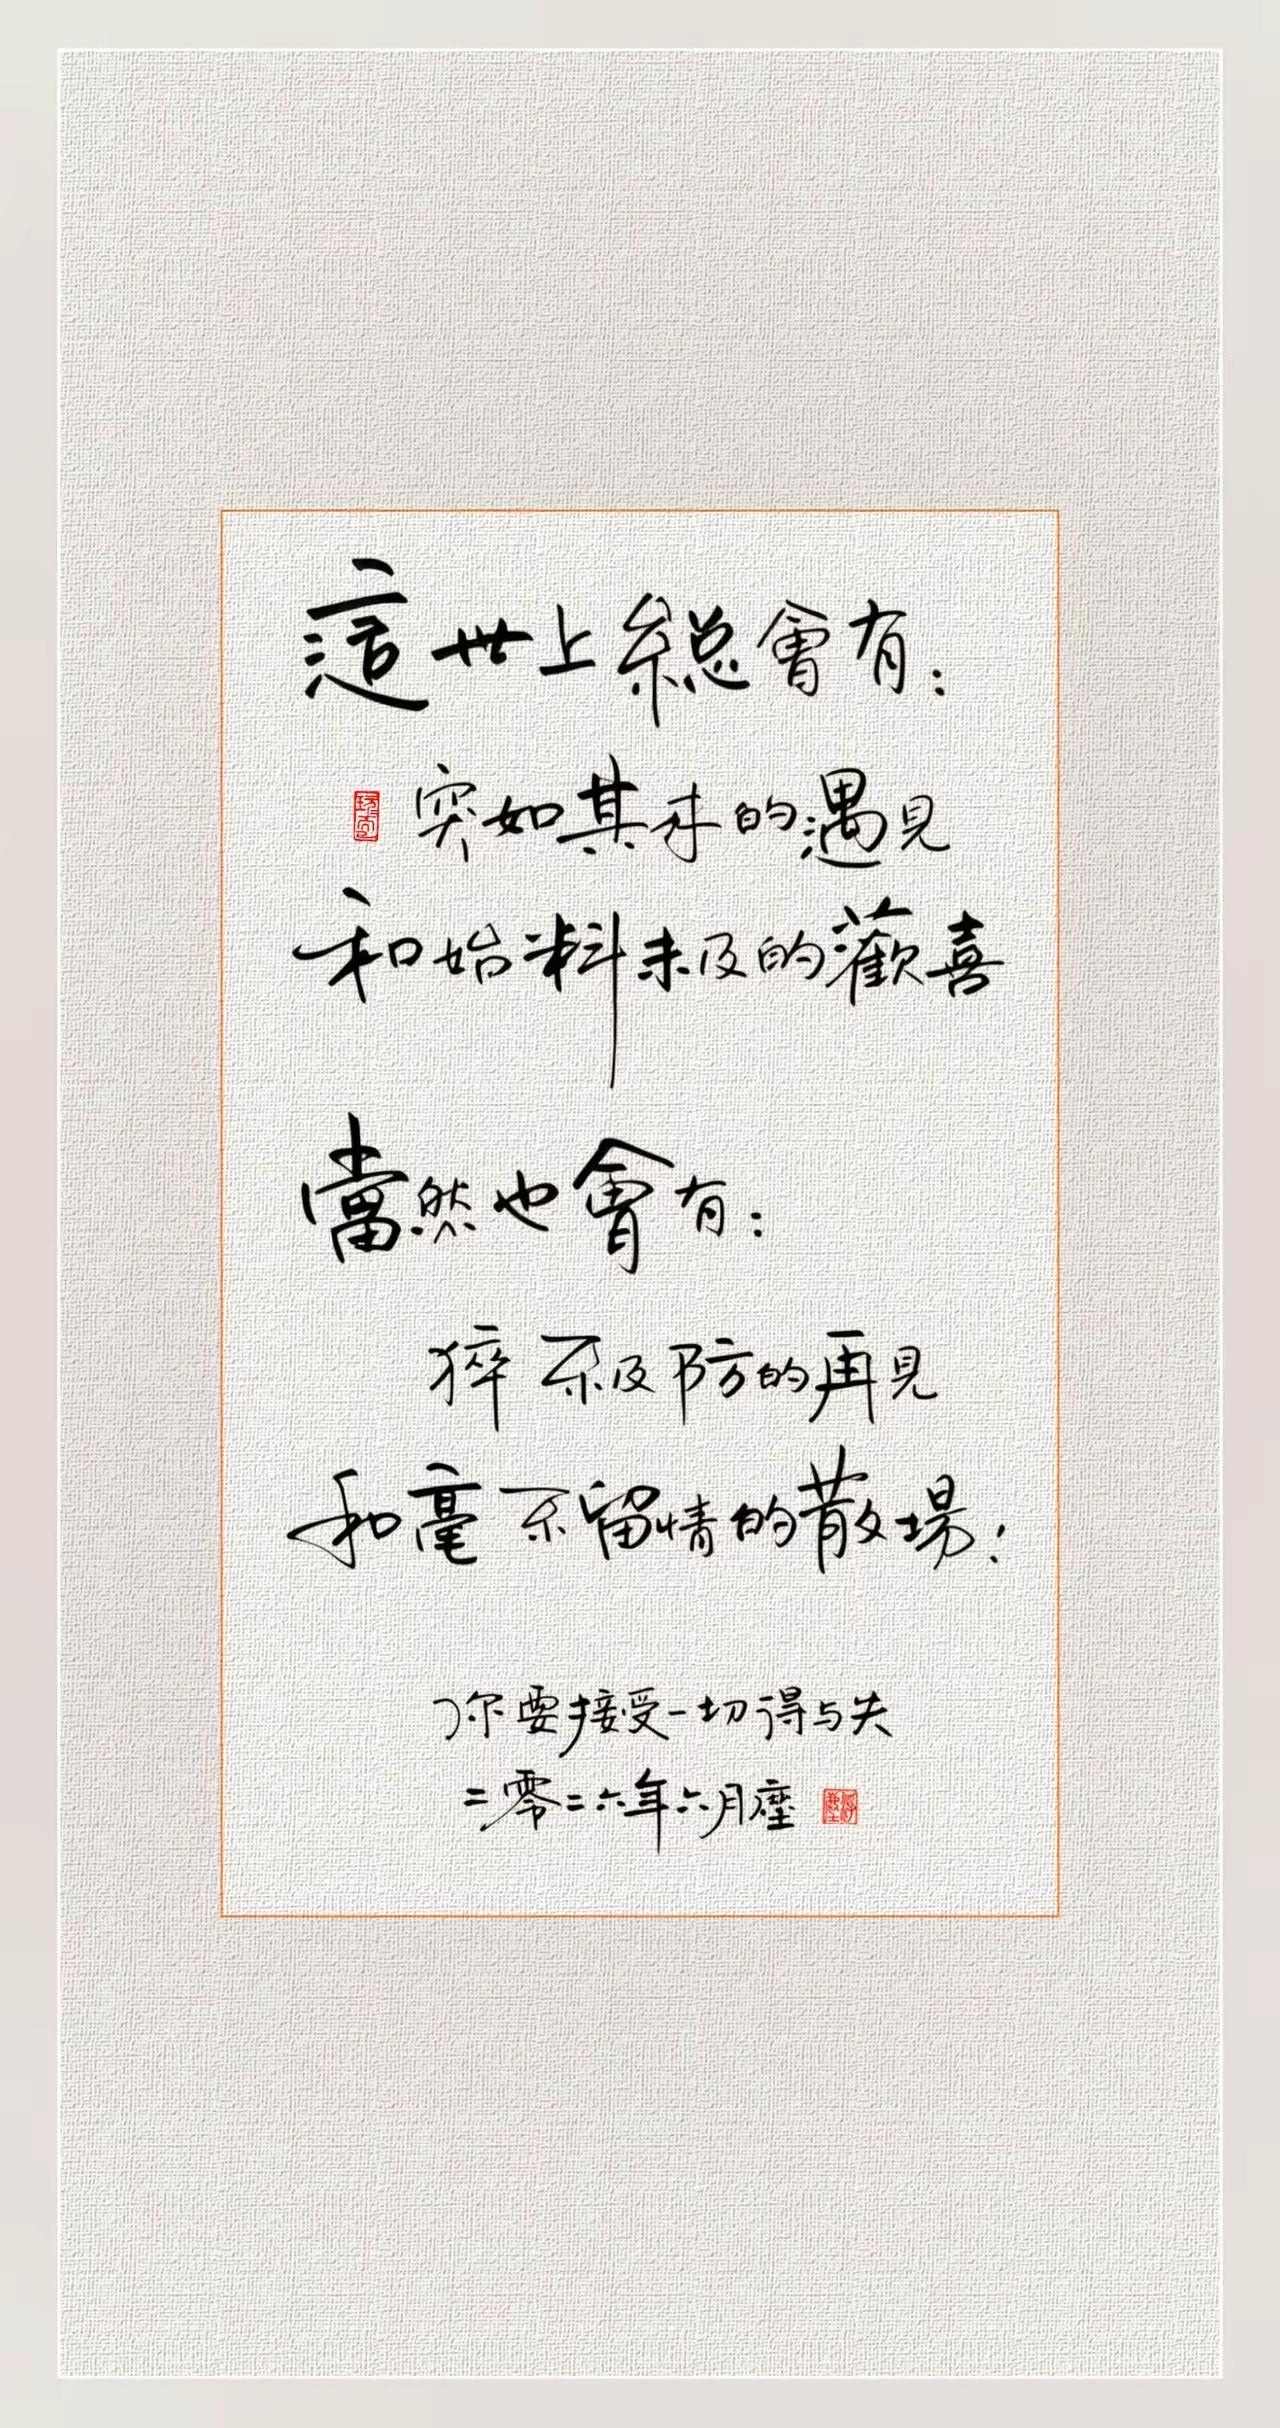 這世上總會有：
突如其来的遇見
和始料未及的歡喜
當然也會有：
猝不及防的再見
和毫不留情的散場！
你要接受一切得与失
二零二六年六月塵